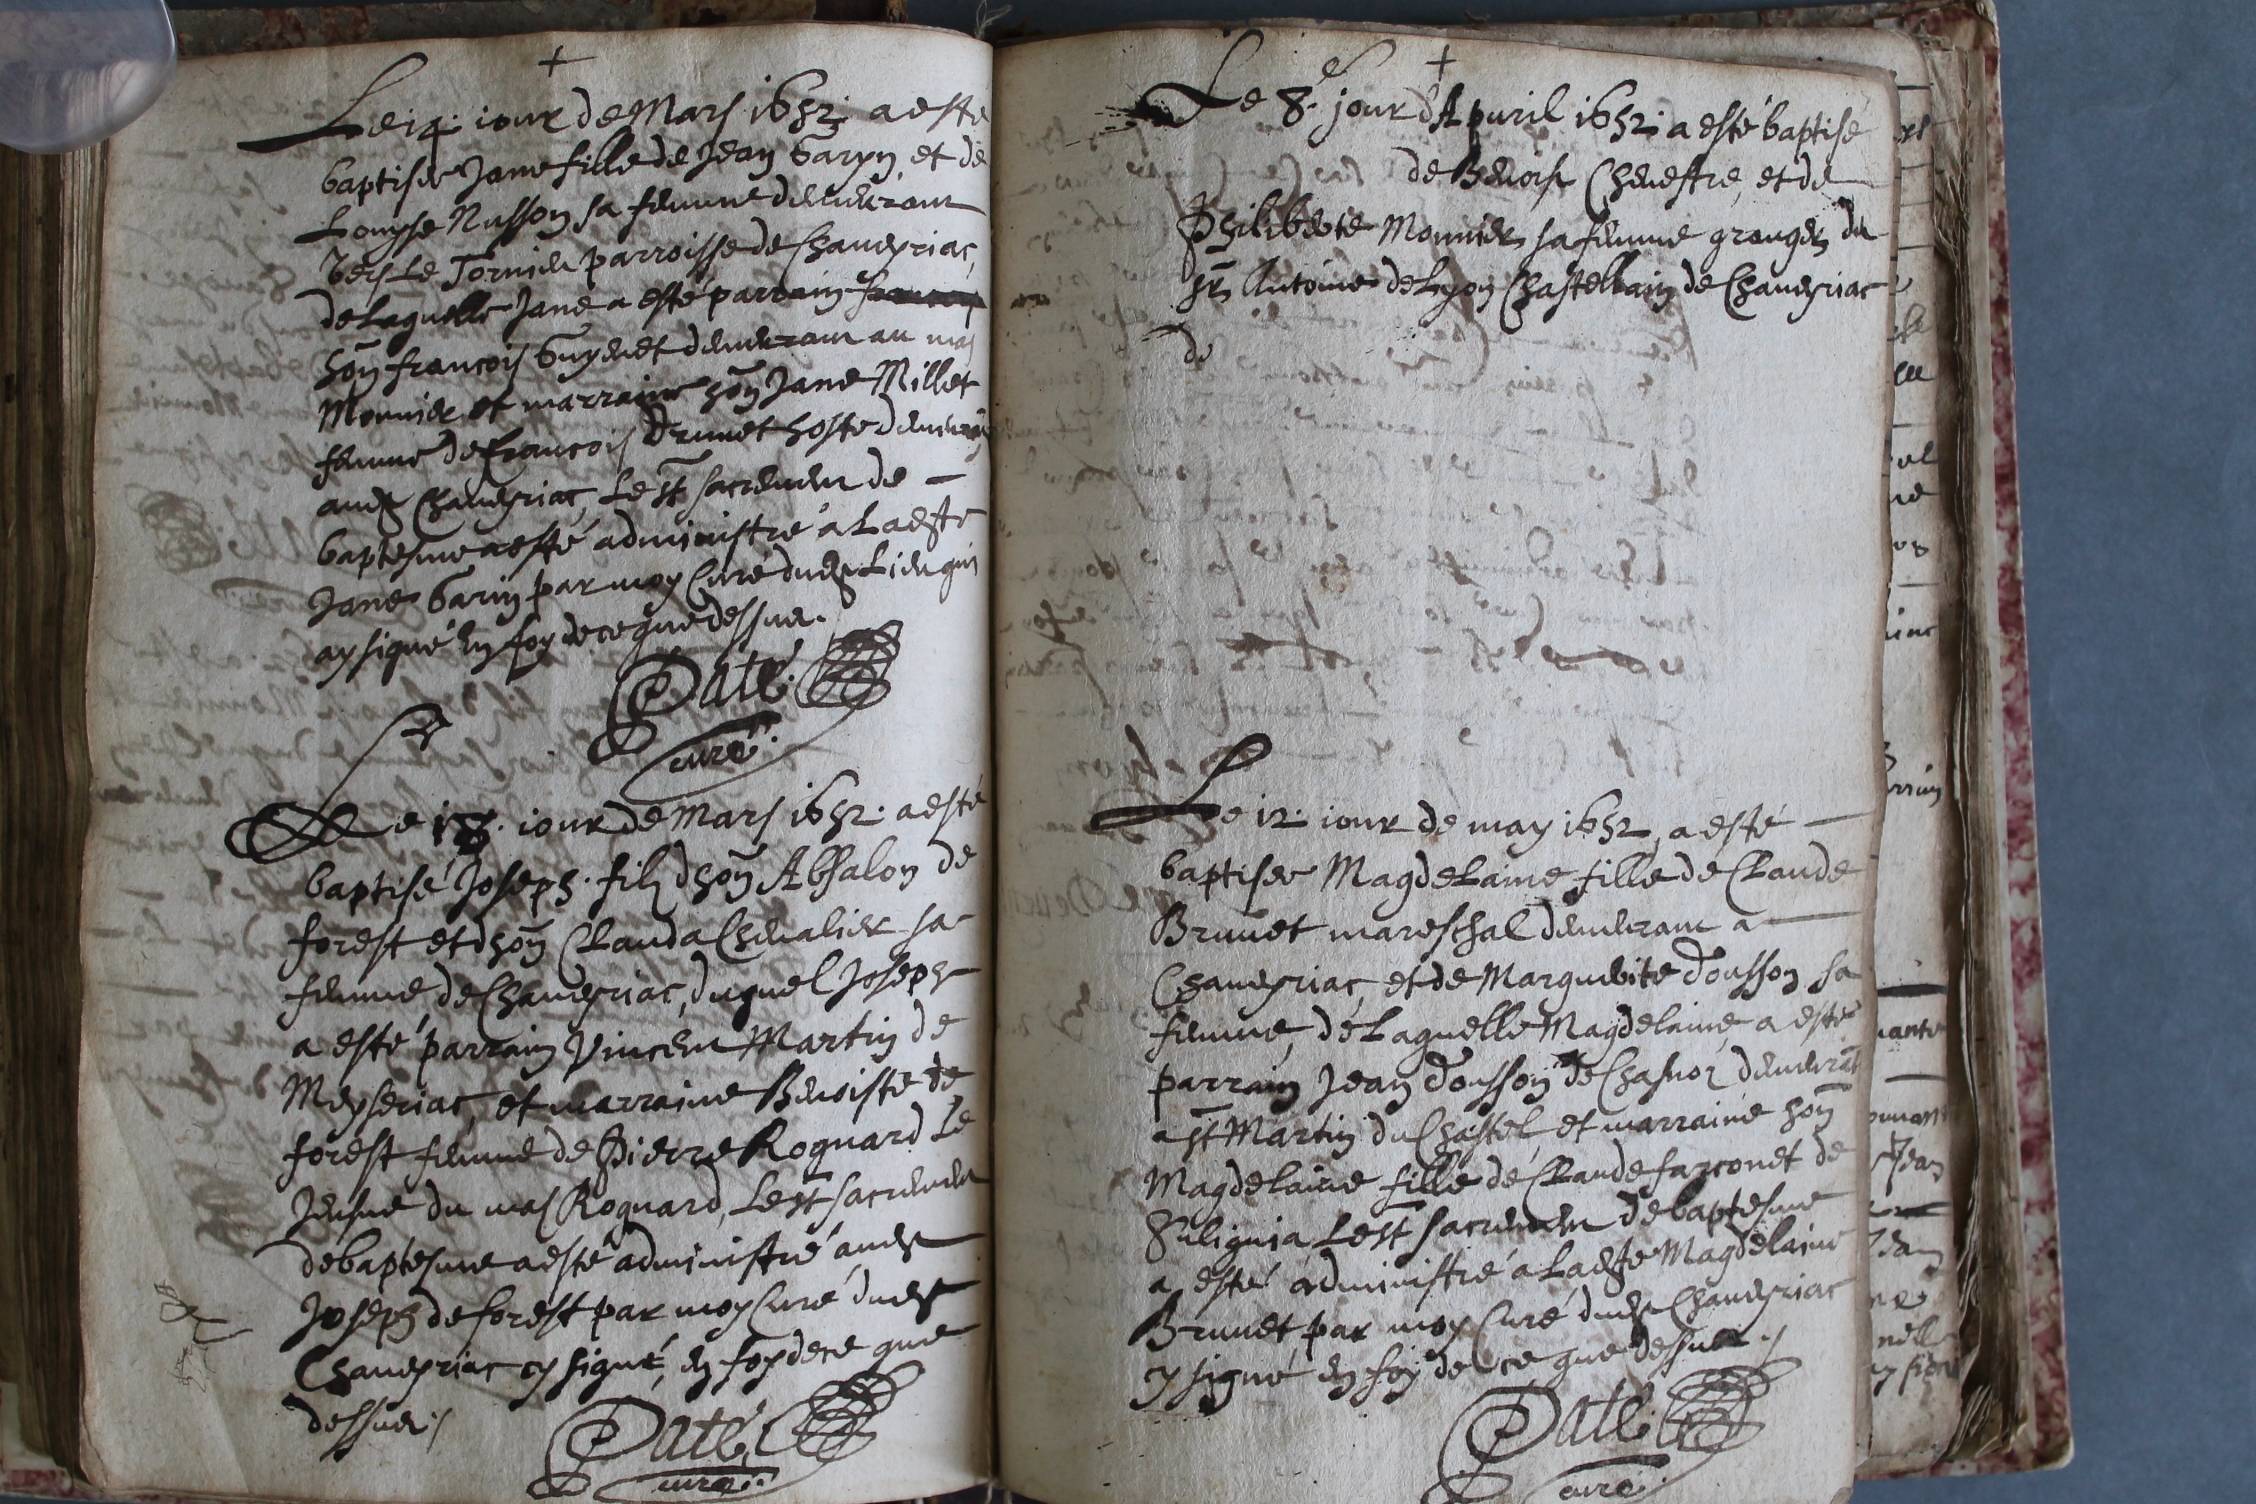 Le 14. iour de Mars 1652. a esté
baptisee Jane fille de Jean Garyn, et de
Louyse Nusson sa femme demeurant
vers Le Tornier parroisse de Chaveyriac,
de Laquelle Jane a esté parrain
hon francois Guyenet demeurant au mas
Monnier et marraine hon Jane Millet
femme de francois Brunet hoste demeurant
aud Chaveyriac, Le st sacrement de
baptesme a esté administré a Ladste
Jane Garin par moy Curé dud Lieu qui
ay signé en foy de ce que dessus.
Paté
curé.
Le 18. iour de Mars 1652. a esté
baptisé Joseph. filz dhon Absalon de
forest et dhon Clauda Chevalier sa
femme de Chaveyriac, duquel Joseph
a esté parrain Vincent Martin de
Meyseriac, et marraine Benoiste de
forest femme de Pierre Roquard Le
Jeusne du mas Roquard, Le st sacrement
de baptesme a esté administré audst
Joseph de forest par moy Curé dudst
Chaveyriac cy signé, en foy de ce que
dessus./
Paté
curé.
Le 8. jour d'Apuril 1652. a esté baptisé
de Benoist Chevestre, et de
Philiberte Monnier sa femme granger du
sr Antoine de Lyon Chastellain de Chaveyriac
de
Le 12. iour de may 1652, a esté
baptisee Magdelaine fille de Claude
Brunet mareschal demeurant a
Chaveyriac, et de Marguerite Dousson sa
femme, de Laquelle Magdelaine, a esté
parrain Jean Dousson de demeurat
a st Martin du Chastel, et marraine hon
Magdelaine fille de Claude farconet de
Suligna Le st sacrement de baptesme
a esté administré a Ladste Magdelaine
Brunet, par moy Curé dudst Chaveyriac
cy signé en foy de ce que dessus./
Paté
curé.